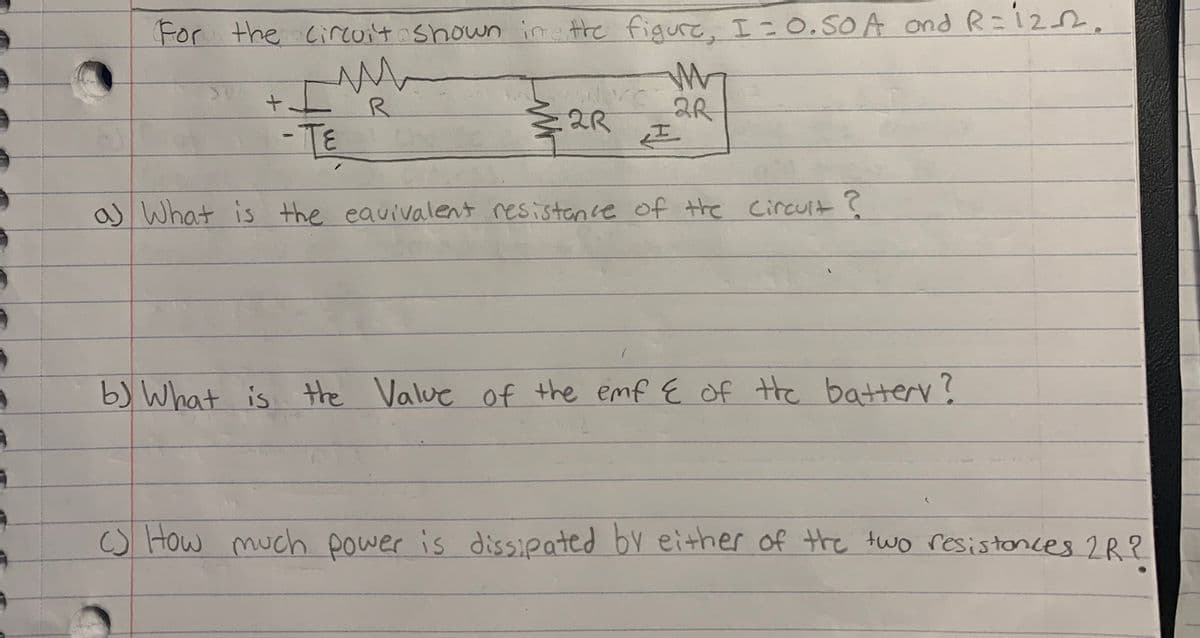 For the circuit shown in the figure, I = 0.50 A and R = 12 Ω.
+ R 2R 2R
- ε I
a) What is the eauivalent resistance of the circuit?
b) What is the Value of the emf ε of the batterv?
c) How much power is dissipated by either of the two resistances 2R?